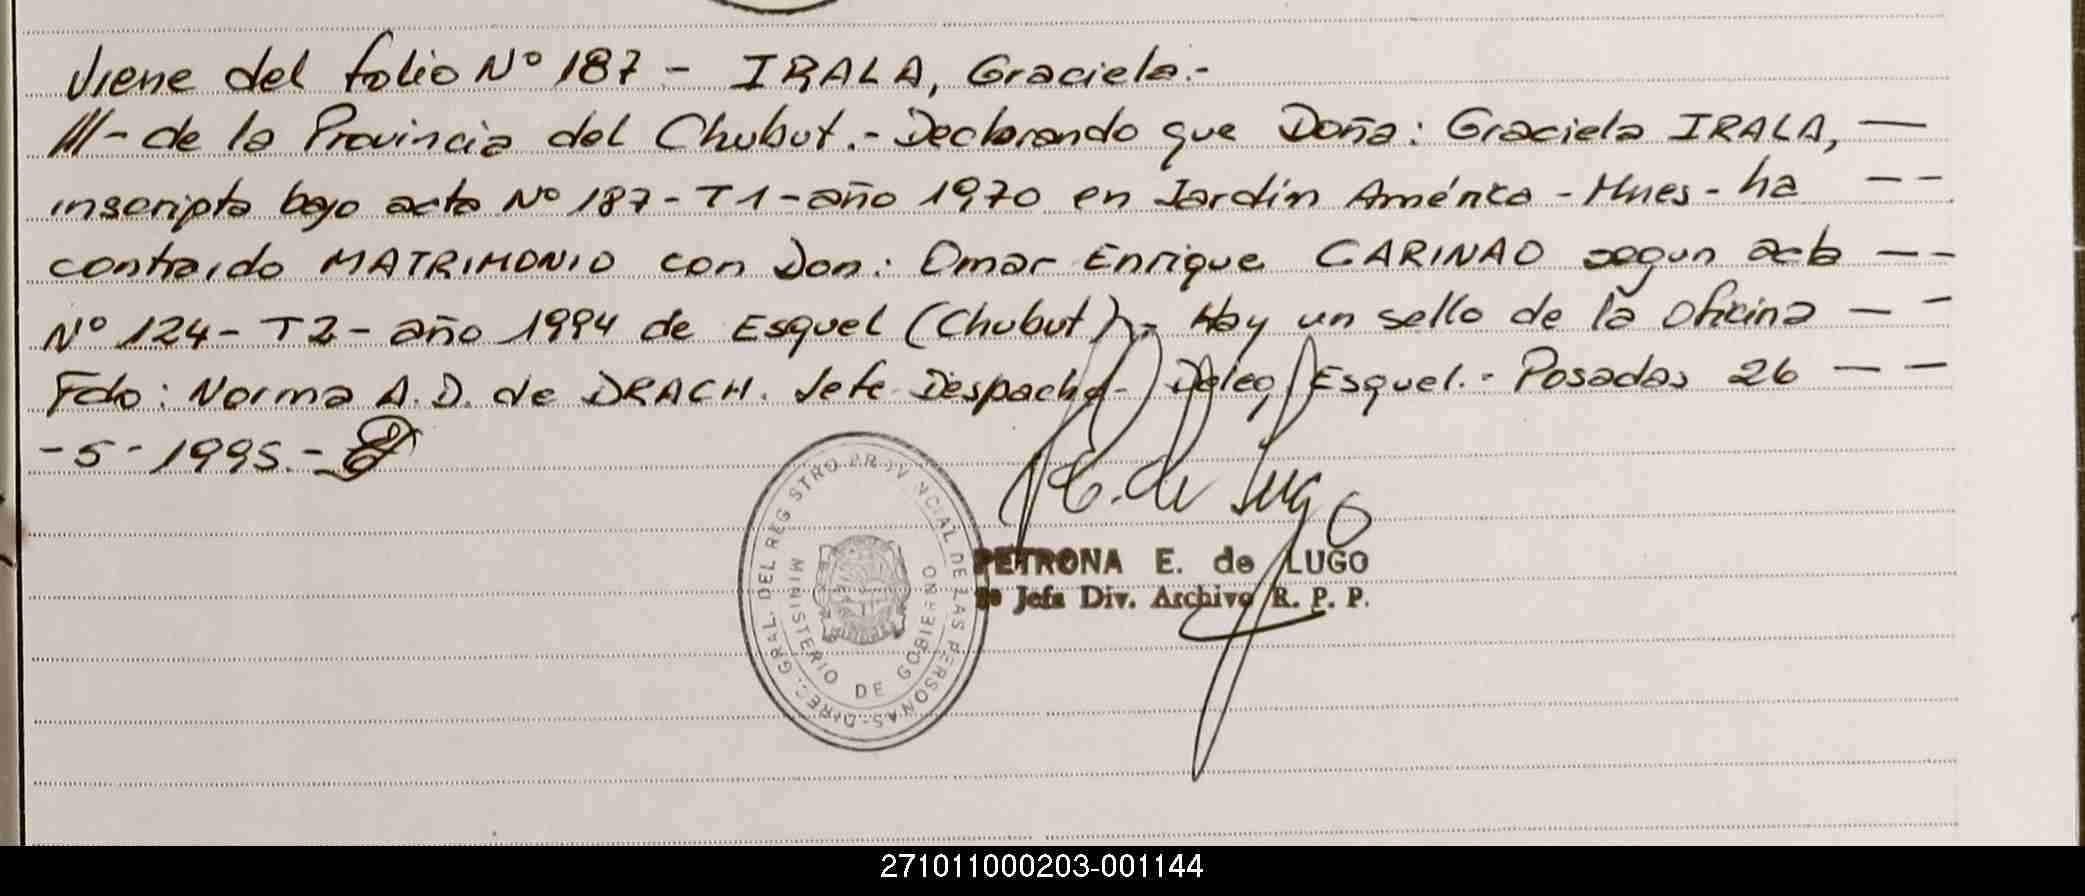 Viene del folio Nº 187 - IRALA, Graciela.-
///- de la Provincia del Chubut.- Declarando que Doña: Graciela IRALA, —
inscripta bajo acta Nº 187 - T1 - año 1970 en Jardín América - Mnes - ha — —
contraido MATRIMONIO con Don: Omar Enrique CARINAO segun acta — —
Nº 124 - T2 - año 1994 de Esquel (Chubut).- Hay un sello de la oficina — —
Fdo: Norma A. D. de DRACH. Jefe Despacho - Deleg. Esquel.- Posadas 26 — —
-5-1995.-
DIREC. GRAL. DEL REGISTRO PROVINCIAL DE LAS PERSONAS
MINISTERIO DE GOBIERNO
P. E. de Lugo
PETRONA E. de LUGO
Jefa Div. Archivo R. P. P.
271011000203-001144